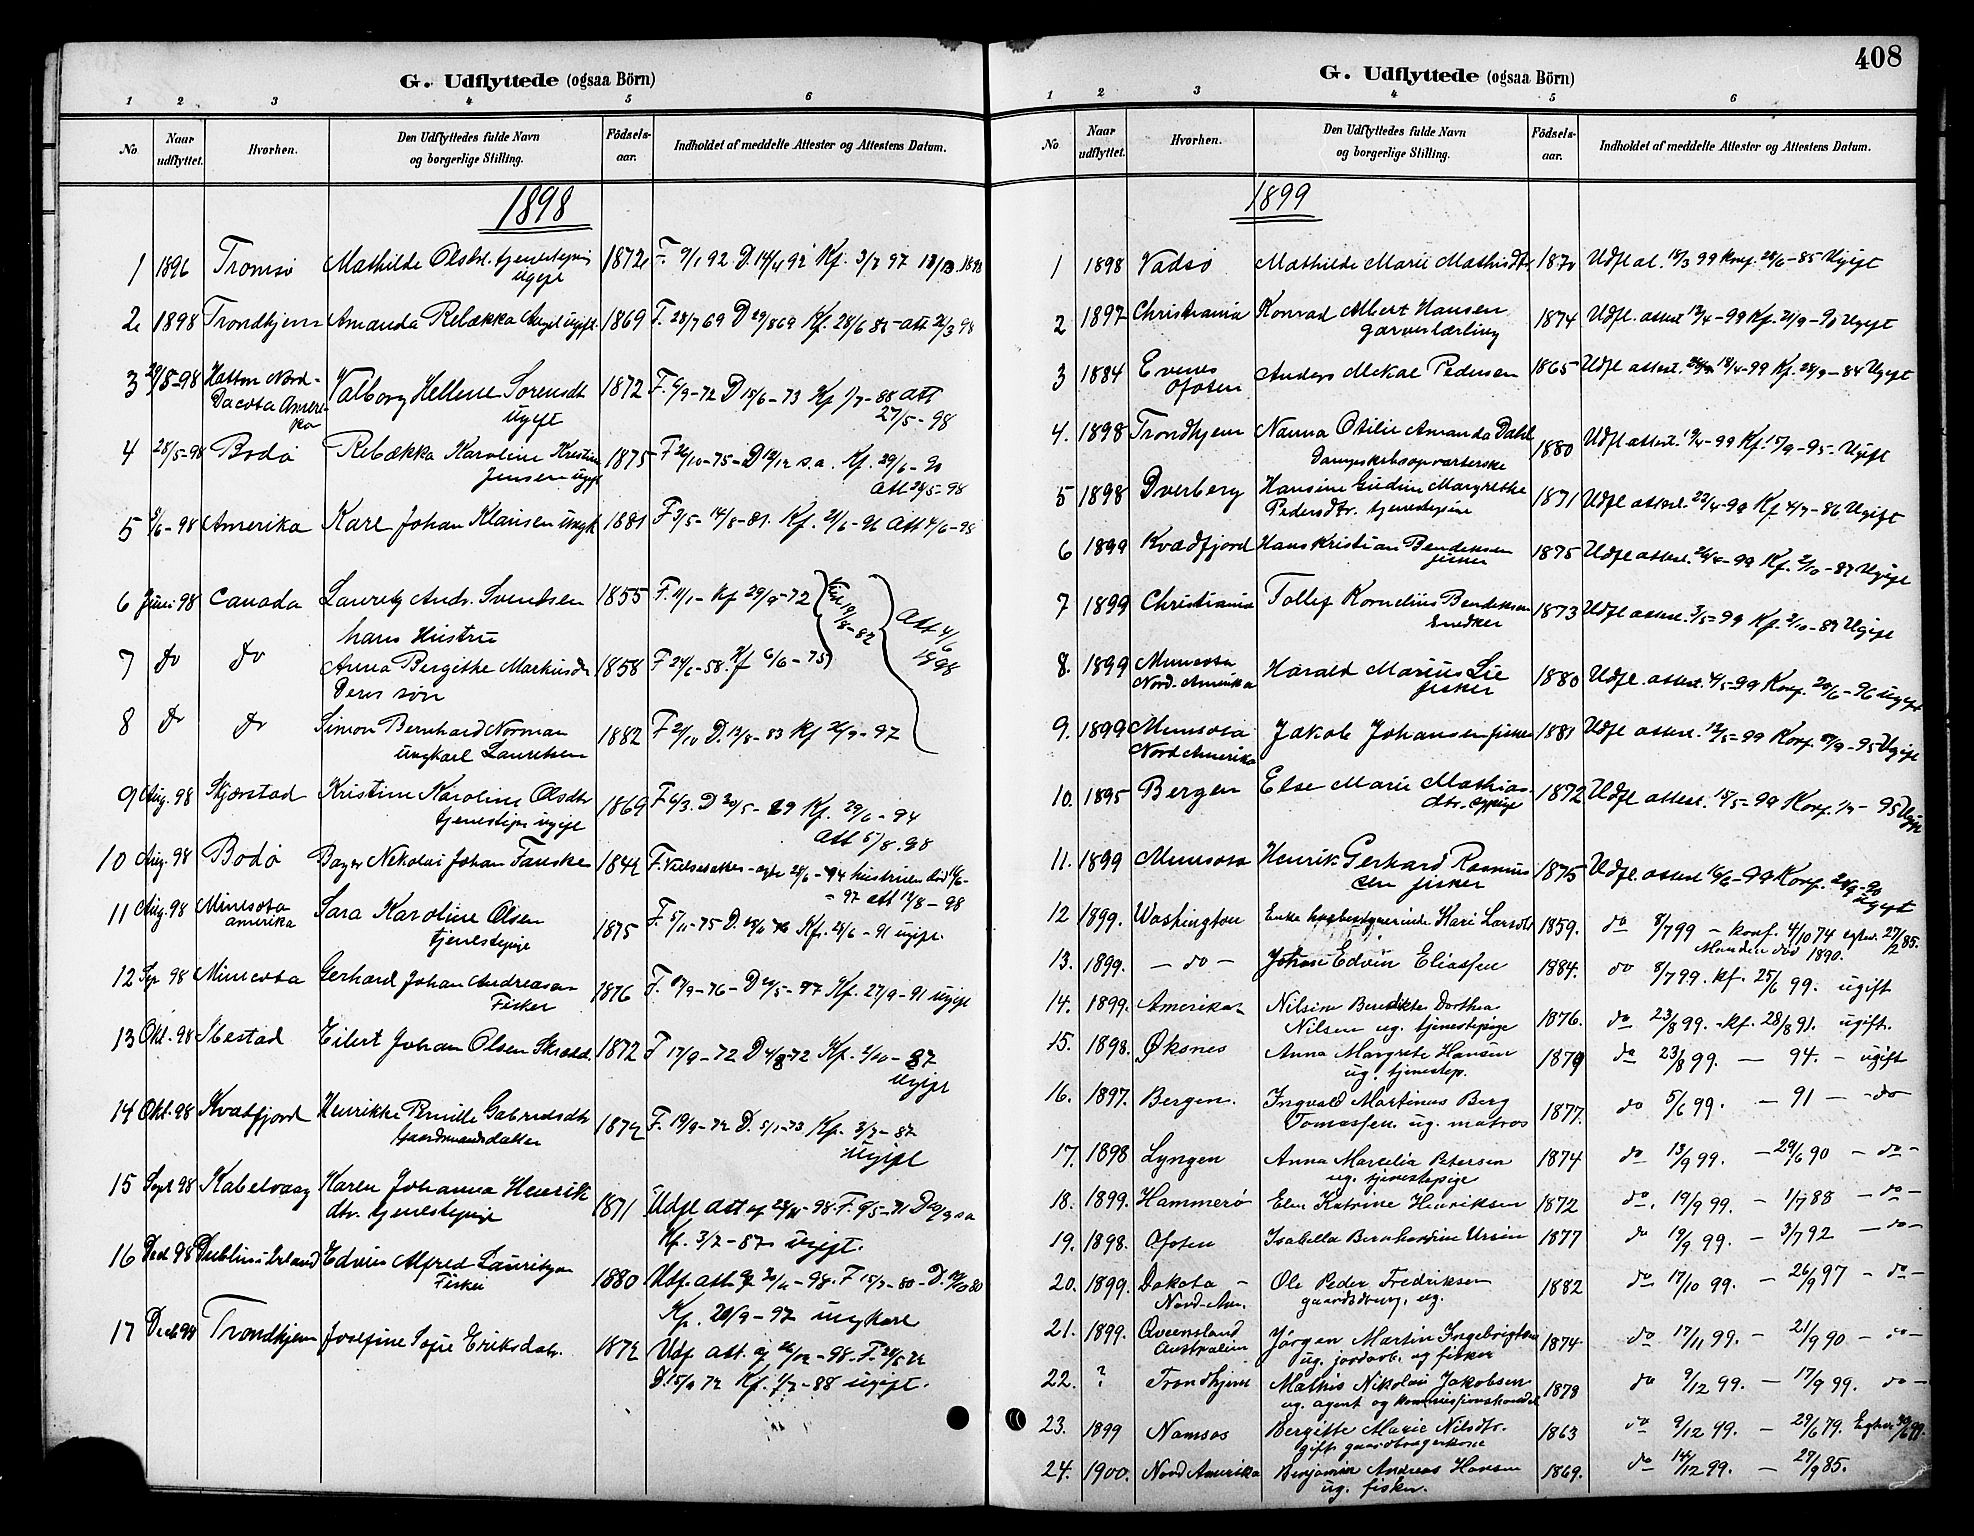 G. Udflyttede (ogsaa Börn)
1 2 3 4 5 6
No
Naar udflyttet.
Hvorhen.
Den Udflyttedes fulde Navn og borgerlige Stilling.
Födsels-aar.
Indholdet af meddelte Attester og Attestens Datum.
1898
1 1896 Tromsö Mathilde Olsdt. tjenestepige 1872
ugift
2 1898 Trondhjem Amanda Rebækka ugift 1869 F. 28/7 69 D 29/8 69 Kf. 28/6 85 att 21/3 98
3 29/5-98 Hatton Nord- Valborg Hellene Sorensdt 1872 F. 6/9-72 D 15/6-73 Kf 1/7-88 att
Dacota Ameri- ugift 27/5-98
ka
4 28/5-98 Bodö Rebækka Karoline Kristine 1875 Kf. 29/6-90
Jensen ugift att 28/5-98
5 Amerika Karl Johan Klausen ungk 1881 att 4/6-98
6 Juni 98 Canada Lauritz Andr. Svendsen 1855 F. 11/1- Kf 29/9-72
hans Hustru att 4/6 1898
7 do do Anna Bergithe Markusdr 1858 F 24/6-58. Kf 6/6-75
Deres sön
8 do do Simon Bernhard Norman 1882 D. 13/8-83 Kf 26/9-97
ungkarl Lauritsen
9 Aug. 98 Skjerstad Kristine Karoline Olsdtr 1869 F 6/3. D 20/5-69 Kf. 29/6-94
tjenestepi ugift att 5/8-98
10 Aug. 98 Bodö Nekolai Johan Fauske 1842
-97 att 12/8-98
11 Aug. 98 Minesota Sara Karoline Olsen 1875 F. 5/11-75 Kf. 28/6-91 ugift.
amerika tjenestepige
12 Sep 98 Minesota Gerhard Johan Andreasen 1876 Kf. 27/9-91 ugift
Fisker
13 Okt. 98 Ibestad Eilert Johan Olsen 1872 F 17/9-72 D 4/8 72 Kf. 2/10-87
ugift
14 Okt. 98 Kvæfjord Henrikke Pernille Gabrielsdtr 1872 F. 19/9-72 D. 5/1-73 Kf. 3/7-87
Gaardmandsdatter ugift
15 Sept 98 Kabelvaag Karen Johanna Henrik 1871 Udfl att af
dtr. tjenestepige Kf. 3/7-87 ugift.
16 Decb 98 Dublin i Irland Edvin Alfred Lauritzen 1880 Udf. att
Fisker Kf. 26/9-97 ungkarl
17 Decb 98 Trondhjem Josefine Sofie Eriksdatr. 1872 Udf att. af
Kf. 1/7-88 ugift.
408
G. Udflyttede (ogsaa Börn)
1 2 3 4 5 6
No
Naar udflyttet.
Hvorhen.
Den Udflyttedes fulde Navn og borgerlige Stilling.
Födsels-aar.
Indholdet af meddelte Attester og Attestens Datum.
1899
1 1898 Vadsö Mathilde Marie Mathisdtr 1870 Udfl at. 18/3 99 Konf. 28/6-85 Ugift
2 1897 Christiania Konrad Albert Hansen 1874 Udfl. attest 12/4-99 Kf. 21/9-90 Ugift
garverlærling
3 1884 Evenes Anders Mekal Pedersen 1865 Udfl attest. 18/4-99 Kf. 28/9-84 Ugift
Ofoten
4. 1898 Trondhjem Nanna Otilie Amanda Dahl 1880 Udfl attest. 19/4-99 Kf. 15/9-95- Ugift
Dampskibsopvarterske
5 1898 Dverberg Hansine Gudine Margrethe 1871 Udfl attest. 22/4-99 Kf 4/7-86 Ugift
Pedersdtr. tjenestepige
6 1899 Kvædfjord Hans Kristian Bendeksen 1875 Udfl attest. 26/4-99 Kf. 2/10-87 Ugift
fisker
7 1899 Christiania Tollef Kornelius Bendeksen 1873 Udfl attest. 3/5-99 Kf. 2/10-87 Ugift
Snedker
8. 1899 Minesota Harald Marius Lie 1880 Udfl. attest. 4/5-99 Konf. 28/6-96 ugift
Nord-Amerika fisker
9. 1899 Minesota Jakob Johansen fisker 1881 Udfl attest. 12/5-99 Konf. Ugift
Nord Amerika
10. 1895 Bergen Else Marie Mathias- 1872 Udfl attest. 18/5-99 Konf.
dtr.
11. 1899 Minesota Henrik Gerhard Rasmus 1875 Udfl. attest 16/6-99 Konf. 28/9-90
sen fisker Ugift
12 1899. Washington Enke husbestyrerinde Kari Larsdt 1859. do 8/7 99 - konf. 4/10 74 egtev. 27/2 85.
Manden död 1890.
13. 1899. -do- Johan Edvin Eliassen 1884. do 8/7 99. kf. 25/6 99. ugift
14. 1899. Amerika Nilsine Benedikte Dorthea 1876. do 23/8 99. - kf. 28/8 91. ugift.
Nilsen ug. tjenestepige
15. 1898. Öksnes Anna Margrete Hansen 1879 do 23/8 99. - 94. - ugift
ug. tjenestep.
16. 1897. Bergen. Ingvald Martinus Berg 1877. do 5/6 99. - 91 - -do-
Tomassen. ug. matros
17. 1898 Lyngen Anna Marcelia Petersen 1874 do 13/9 99. - 29/6 90 - do -
ug. tjenestepige
18. 1899. Hammerö Elen Katrine Henriksen 1872 do. 19/9 99. - 1/7 88 - do -
19. 1898. Ofoten Isabella Bernhardine Ursin 1877 do 19/9 99. - 3/7 92 - do -
20. 1899. Dakota - Ole Peder Fredriksen 1882 do 17/10 99. - 26/9 97 - do -
Nord-Am. gaardsdreng, ug.
21. 1899. Qveensland Jörgen Martin Ingebrigtsen 1874 do 17/11 99. - 21/9 90 - do -
Australien ug. jordarb. og fisker
22. ? Trondhjem Mathis Nikolai Jakobsen 1878 do 9/12 99. - 17/9 99. do -
ug. agent og kommisjonshandel
23. 1899 Namsos Bergitte Marie Nilsdtr. 1863 do 9/12 99. - 29/6 79.
gift gaardbrugerkone
24. 1900. Nord Amerika Benjamin Andreas Hansen 1869. do 14/12 99. - 27/9 85.
ug. fisker.